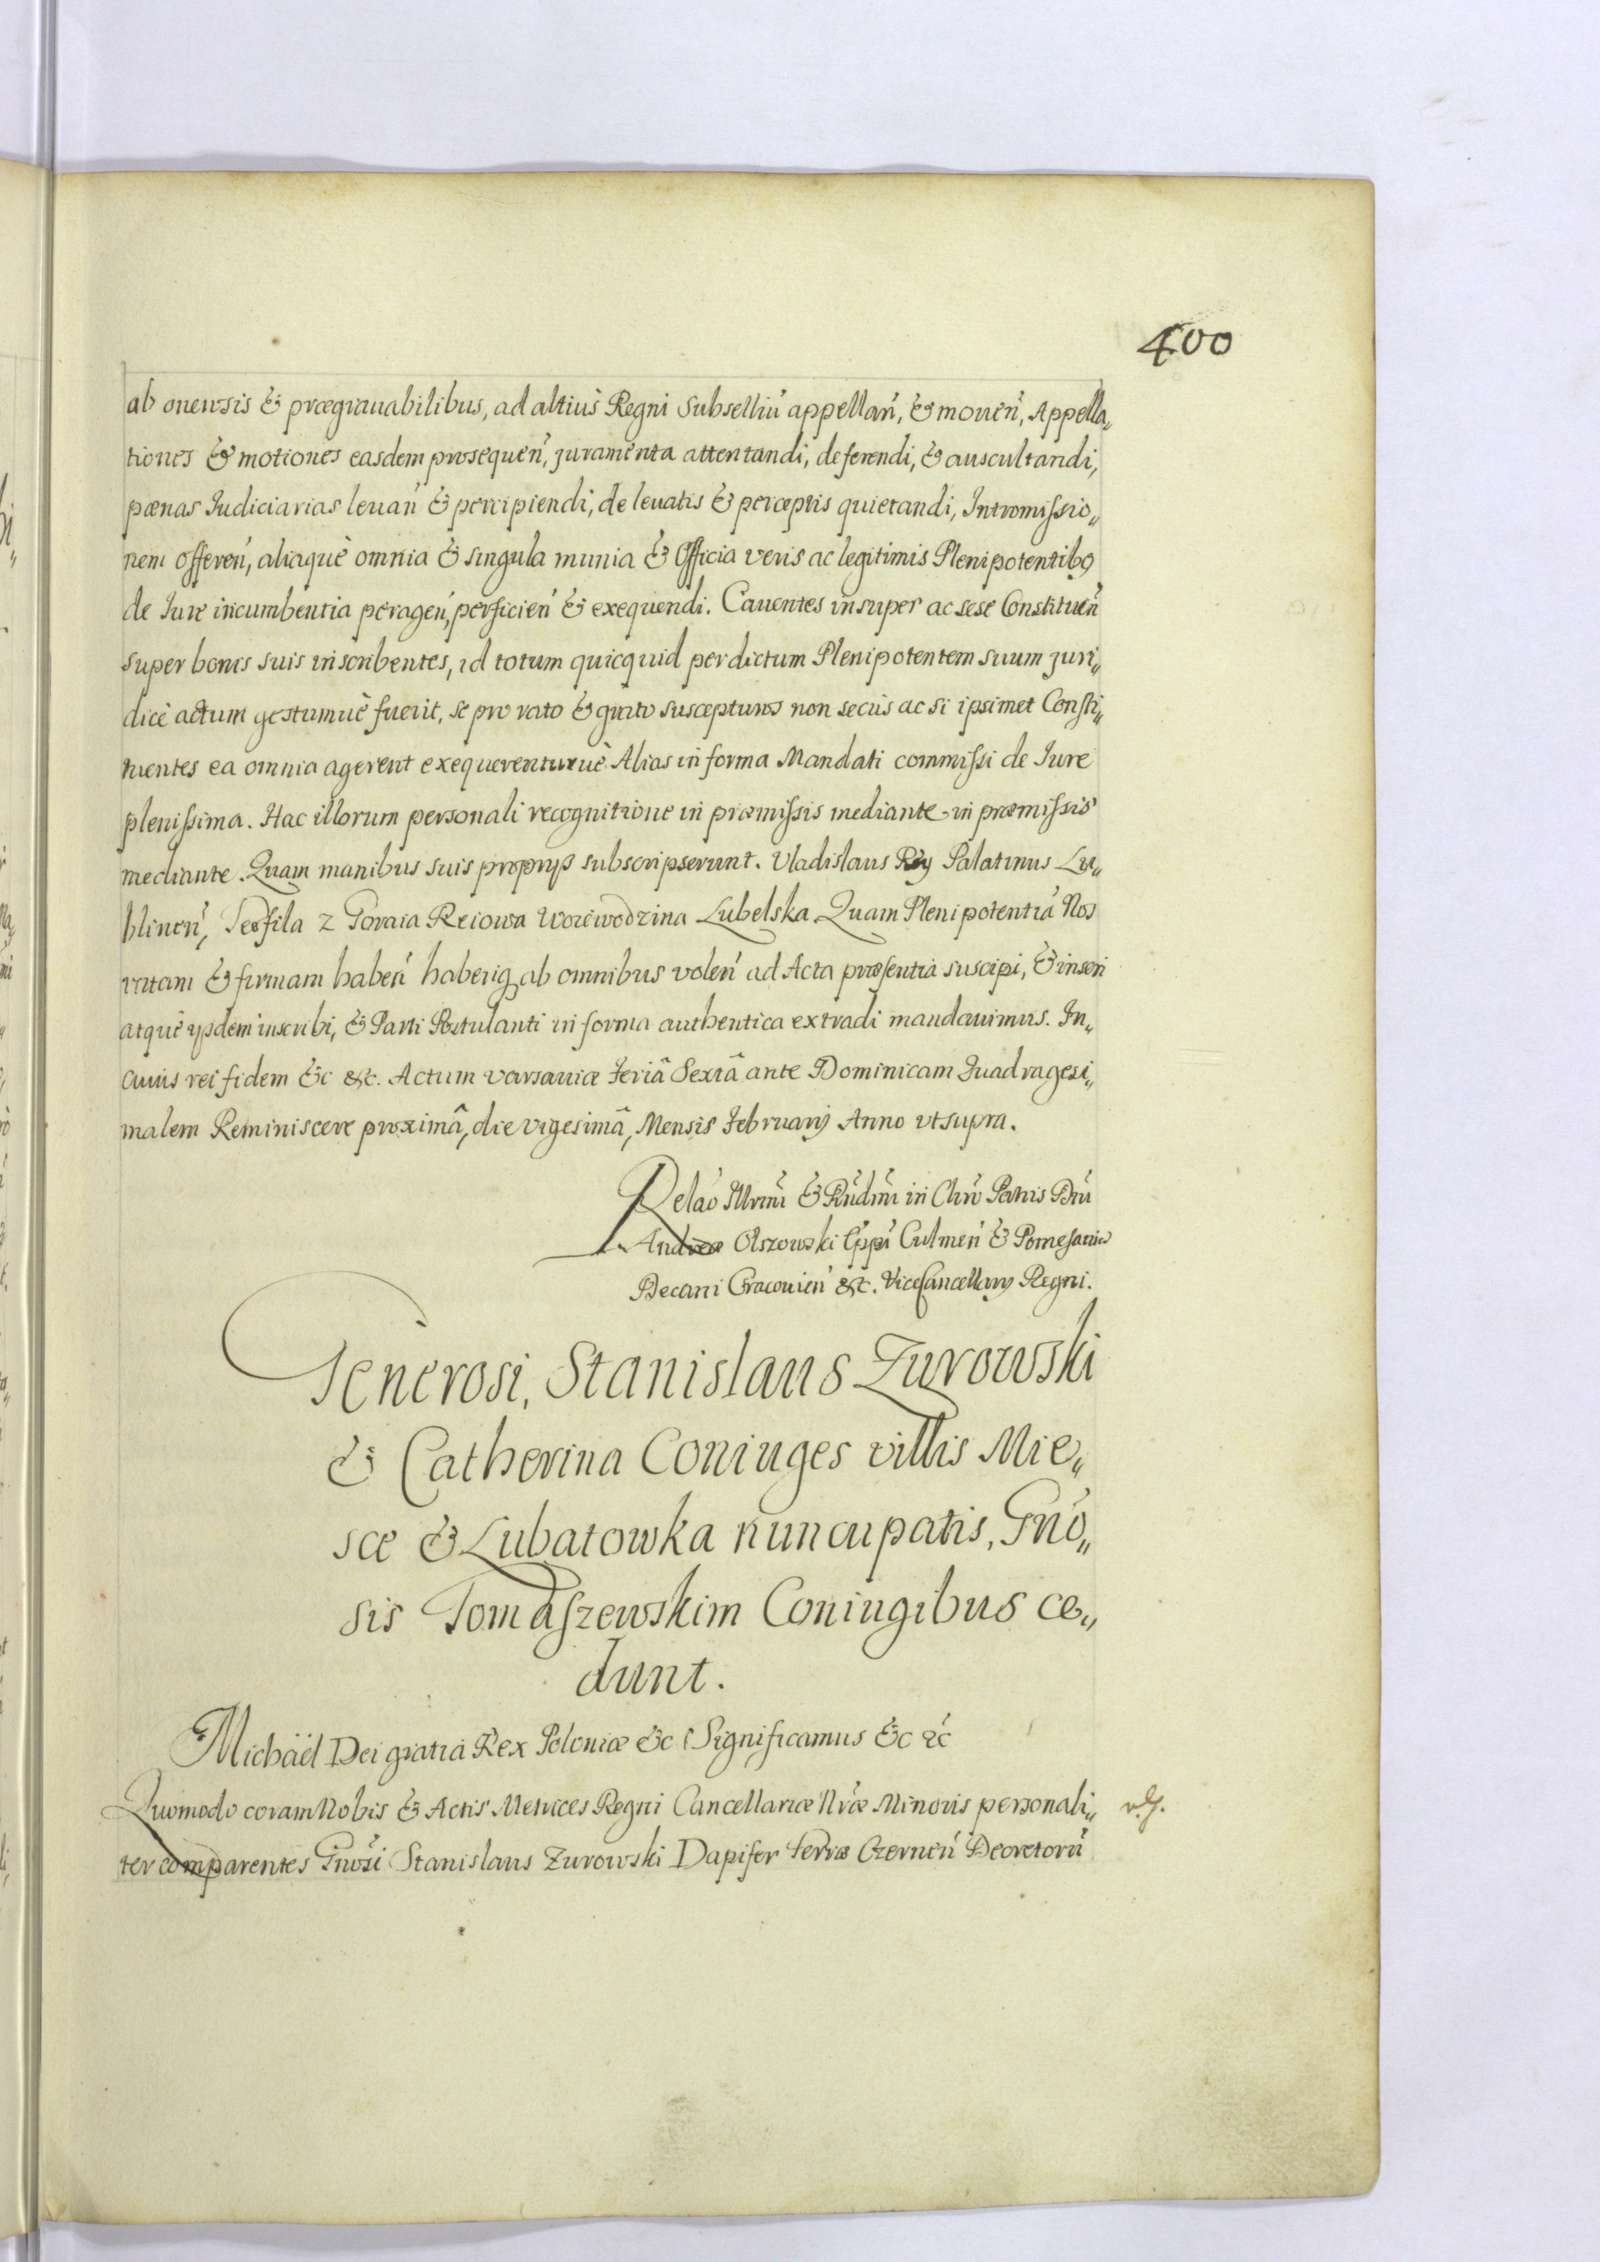 400
ab onersis & prægrauabilibus, ad altius Regni Subselliu appellan, & mouen, Appella„
tiones & motiones easdem prosequen, juramenta attentandi, deferendi, & auscultandi,
pœnas Judiciarias leuan & percipiendi, de leuatis & perceptis quietandi, Intromissio„
nem offeren, aliaque omnia & singula munia & Officia veris ac legitimis Plenipotentibus
de Iure incumbentia peragen, perficien & exequendi. Cauentes insuper ac sese Constituen
super bonis suis inscribentes, id totum quicquid per dictum Plenipotentem suum juri„
dicè actum gestumuè fuerit, se pro rato & grato suscepturos non secùs ac si ipsimet Consti„
tuentes ea omnia agerent exequerenturuè Alias in forma Mandati commissi de Iure
plenissima. Hac illorum personali recognitione in præmissis mediante in præmissis
mediante. Quam manibus suis proprijs subscripserunt. Vladislaus Rey Palatinus Lu„
blinen, Teofila z Goraia Reiowa Woiewodzina Lubelska Quam Plenipotentiã Nos
ratam & firmam haben haberiq ab omnibus volen ad Acta præsentia suscipi, & inseri
atque ijsdem inscribi, & Parti Postulanti in forma authentica extradi mandauimus. In„
cuius rei fidem &c &c. Actum varsauiæ feriâ Sextâ ante Dominicam Quadragesi„
malem Reminiscere proximâ, die vigesimâ, Mensis Februarij Anno vt supra.
Relao Illrmi & Rndmi in Chro Patris Dni
Andreæ Olszowski Eppi Culmen & Pomesaniæ
Decani Cracouien &c. ViceCancellarij Regni.
Generosi, Stanislaus Zurowski
& Catherina Coniuges villis Mie„
sce & Lubatowka nuncupatis, Gnõ„
sis Tomaszewskim Coniugibus ce„
dunt.
Michaël Dei gratiâ Rex Poloniæ &c Significamus &c &c
Quomodo coram Nobis & Actis Metrices Regni Cancellariæ Nræ Minoris personali„
ter comparentes Gnosi Stanislaus Zurowski Dapifer Terræ Czernen Decretorũ